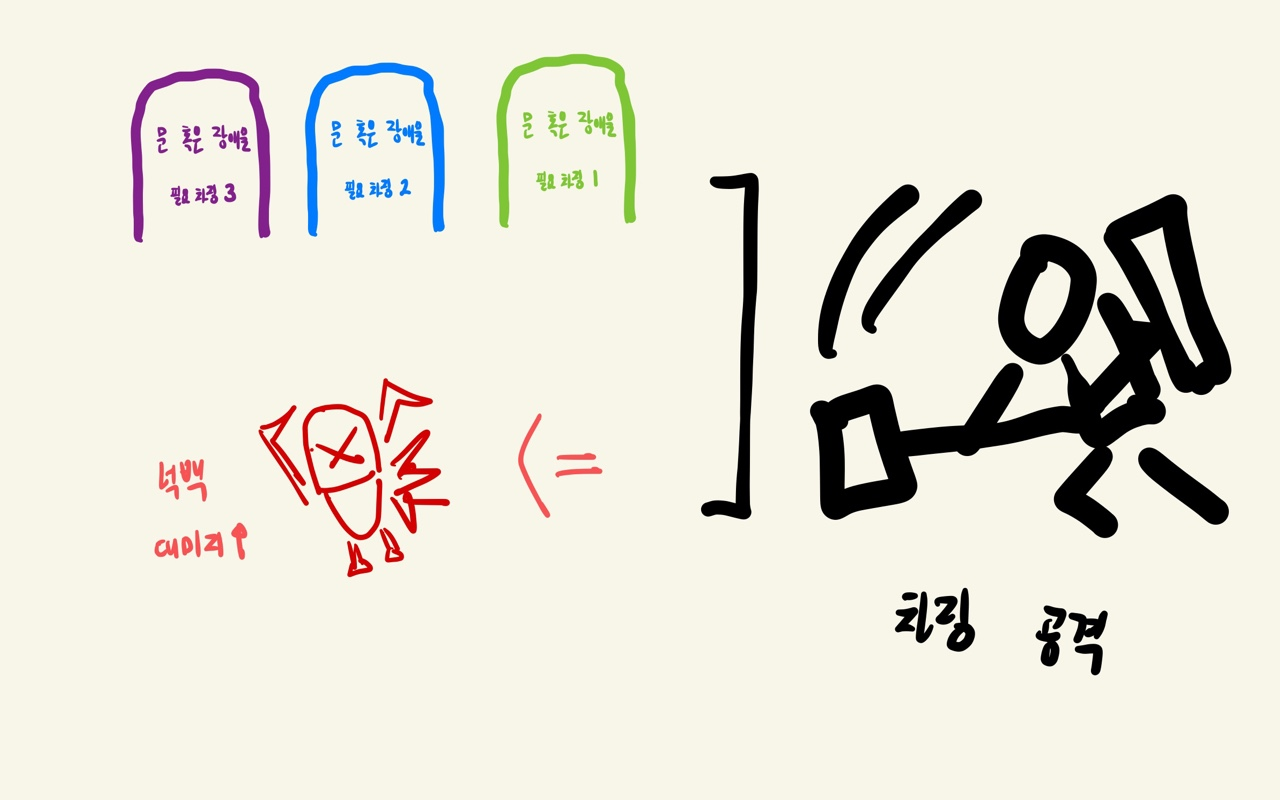 문 혹은 장애물
필요 차징 3
문 혹은 장애물
필요 차징 2
문 혹은 장애물
필요 차징 1
넉백
데미지↑
<=
차징 공격